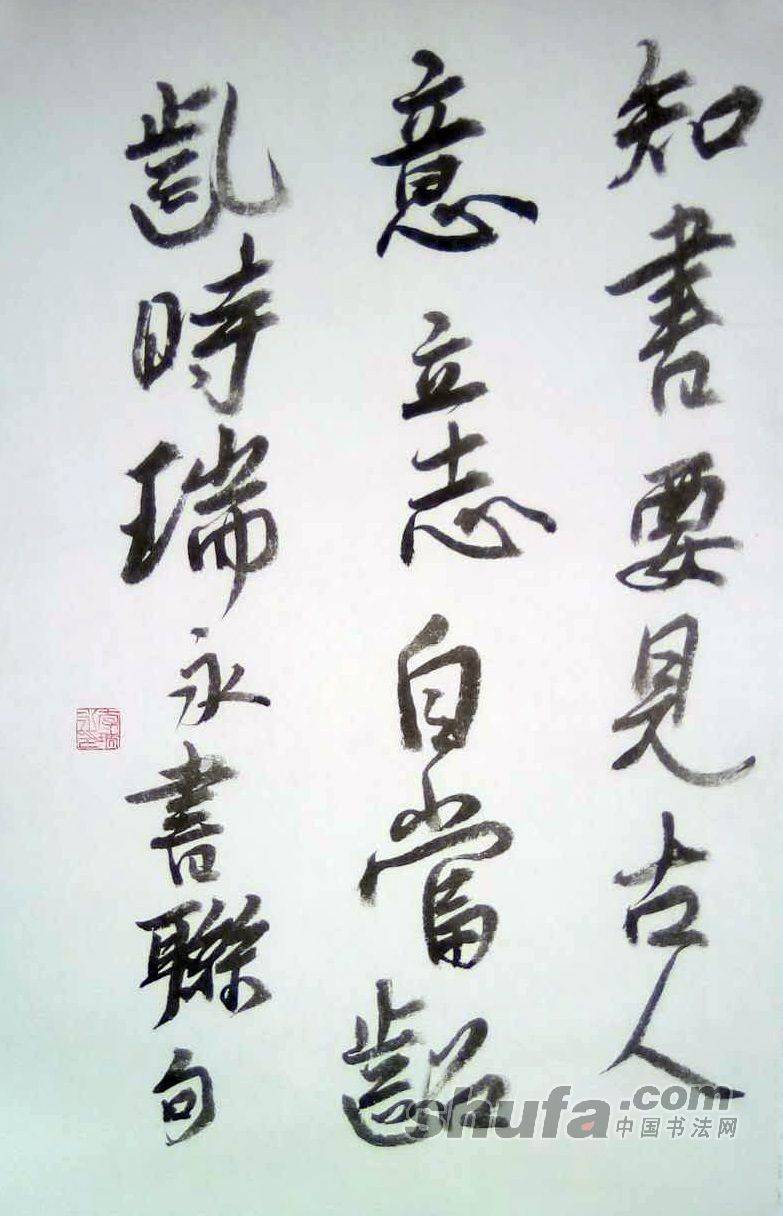 知書要見古人
意立志自當齠
齔時瑞永書聯句
shufa.com
中国书法网